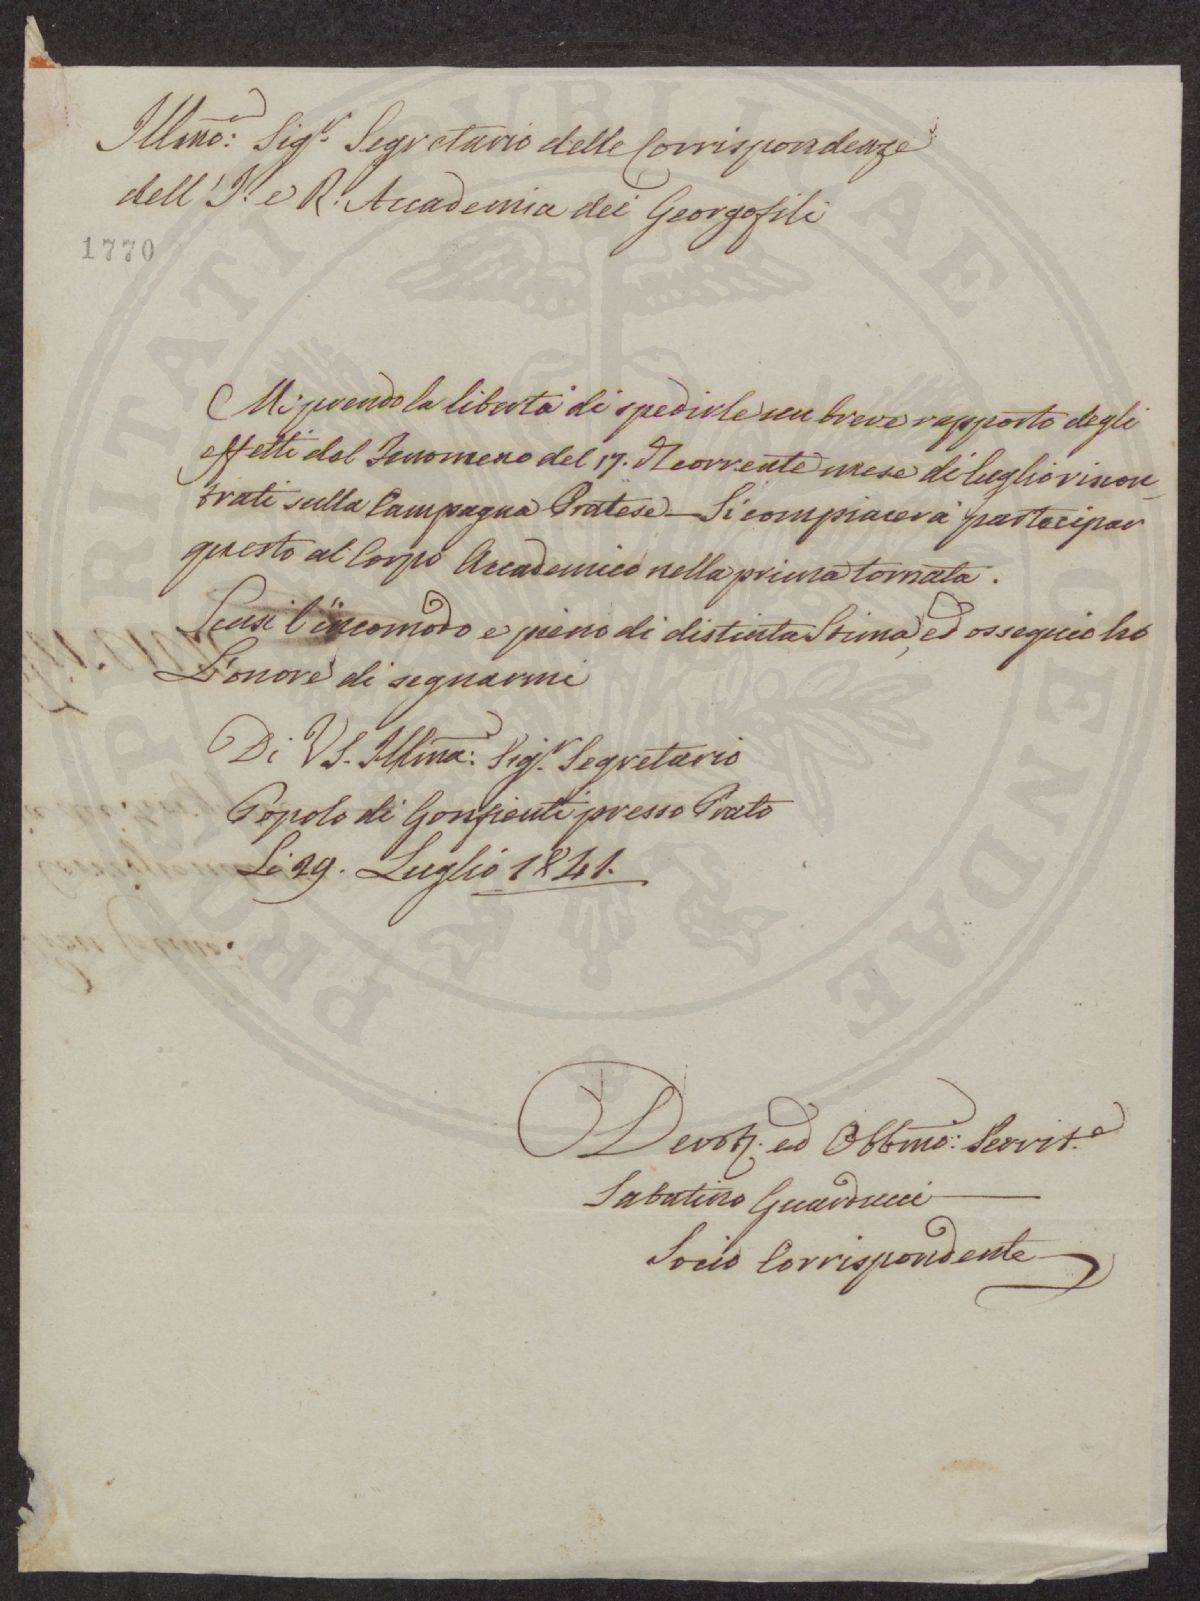 Illmo: Sigr. Segretario delle Corrispondenze
dell' I. e R. Accademia dei Georgofili
1770
Mi prendo la libertà di spedirle un breve rapporto degli
effetti dal Fenomeno del 17. corrente mese di luglio riscon-
trati sulla Campagna Pratese — Si compiacerà partecipar
questo al Corpo Accademico nella prima tornata.
Scusi l'incomodo e pieno di distinta Stima, ed ossequio ho
L'onore di segnarmi
Di VS. Illma: Sigr. Segretario
Popolo di Gonfienti presso Prato
Li 29. Luglio 1841.
Devot. ed Obbmo: Servit.e
Sabatino Guarducci
Socio Corrispondente
PROSPERITATI PUBLICAE AUGENDAE